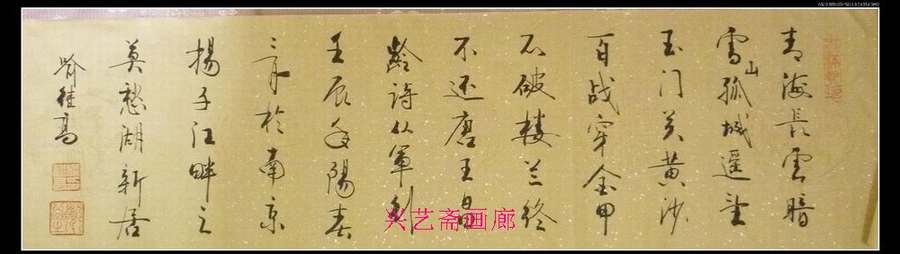 青海長雲暗
雪山孤城遥望
玉门关黄沙
百战穿金甲
不破楼兰终
不还唐王昌
龄诗从军行
壬辰年陽春
三月於南京
揚子江畔之
莫愁湖新居
喻继高
兴艺斋画廊